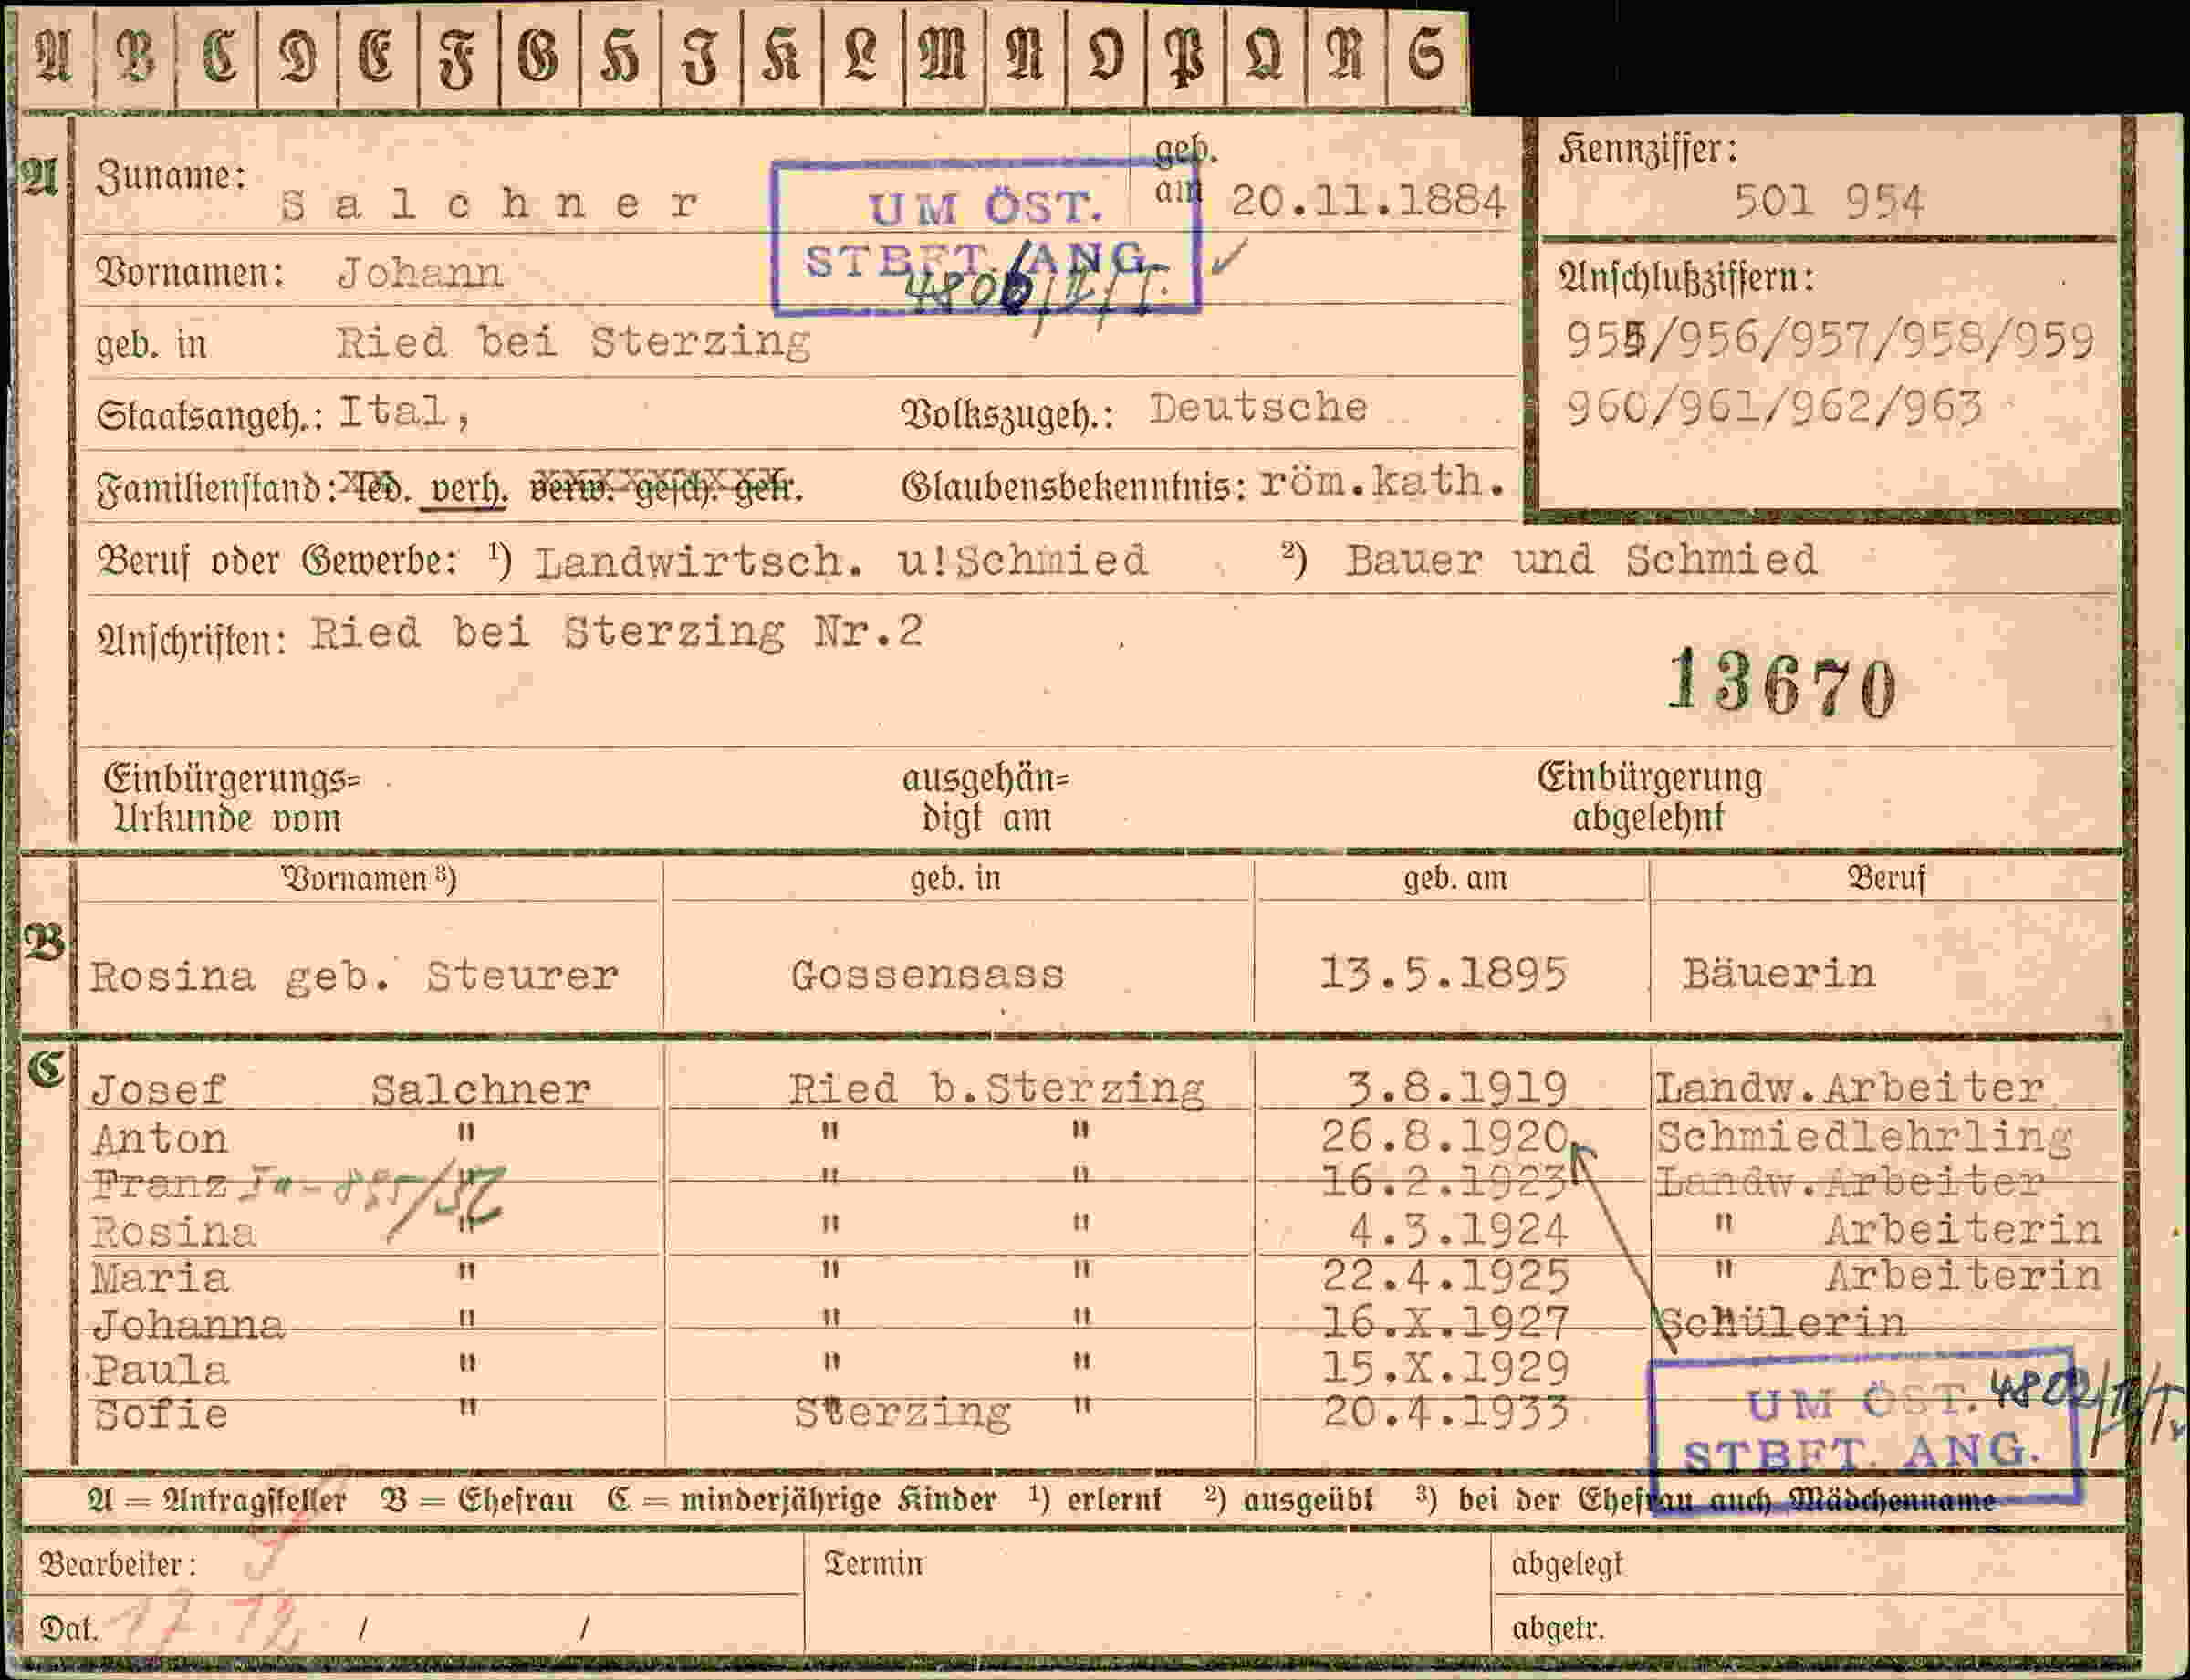 A B C D E F G H I K L M N O P Q R S
A Zuname: Salchner geb. am 20.11.1884 Kennziffer:
501 954
UM ÖST.
STBFT. ANG.
Vornamen: Johann
Anschlußziffern:
geb. in Ried bei Sterzing 955/956/957/958/959
Staatsangeh.: Ital, Volkszugeh.: Deutsche 960/961/962/963
Familienstand: led. verh. verw. gesch. getr. Glaubensbekenntnis: röm.kath.
Beruf oder Gewerbe: ¹) Landwirtsch. u!Schmied ²) Bauer und Schmied
Anschriften: Ried bei Sterzing Nr.2
13670
Einbürgerungs= ausgehän= Einbürgerung
Urkunde vom digt am abgelehnt
Vornamen ³) geb. in geb. am Beruf
B Rosina geb. Steurer Gossensass 13.5.1895 Bäuerin
C Josef Salchner Ried b.Sterzing 3.8.1919 Landw.Arbeiter
Anton " " " 26.8.1920 Schmiedlehrling
Franz " " 16.2.1923 Landw.Arbeiter
Rosina " " " 4.3.1924 " Arbeiterin
Maria " " " 22.4.1925 " Arbeiterin
Johanna " " " 16.X.1927 Schülerin
Paula " " " 15.X.1929
Sofie " Sterzing " 20.4.1933
UM ÖST.
STBFT. ANG.
A = Antragsteller B = Ehefrau C = minderjährige Kinder ¹) erlernt ²) ausgeübt ³) bei der Ehefrau auch Mädchenname
Bearbeiter: Termin abgelegt
Dat. 17 12 / / abgetr.